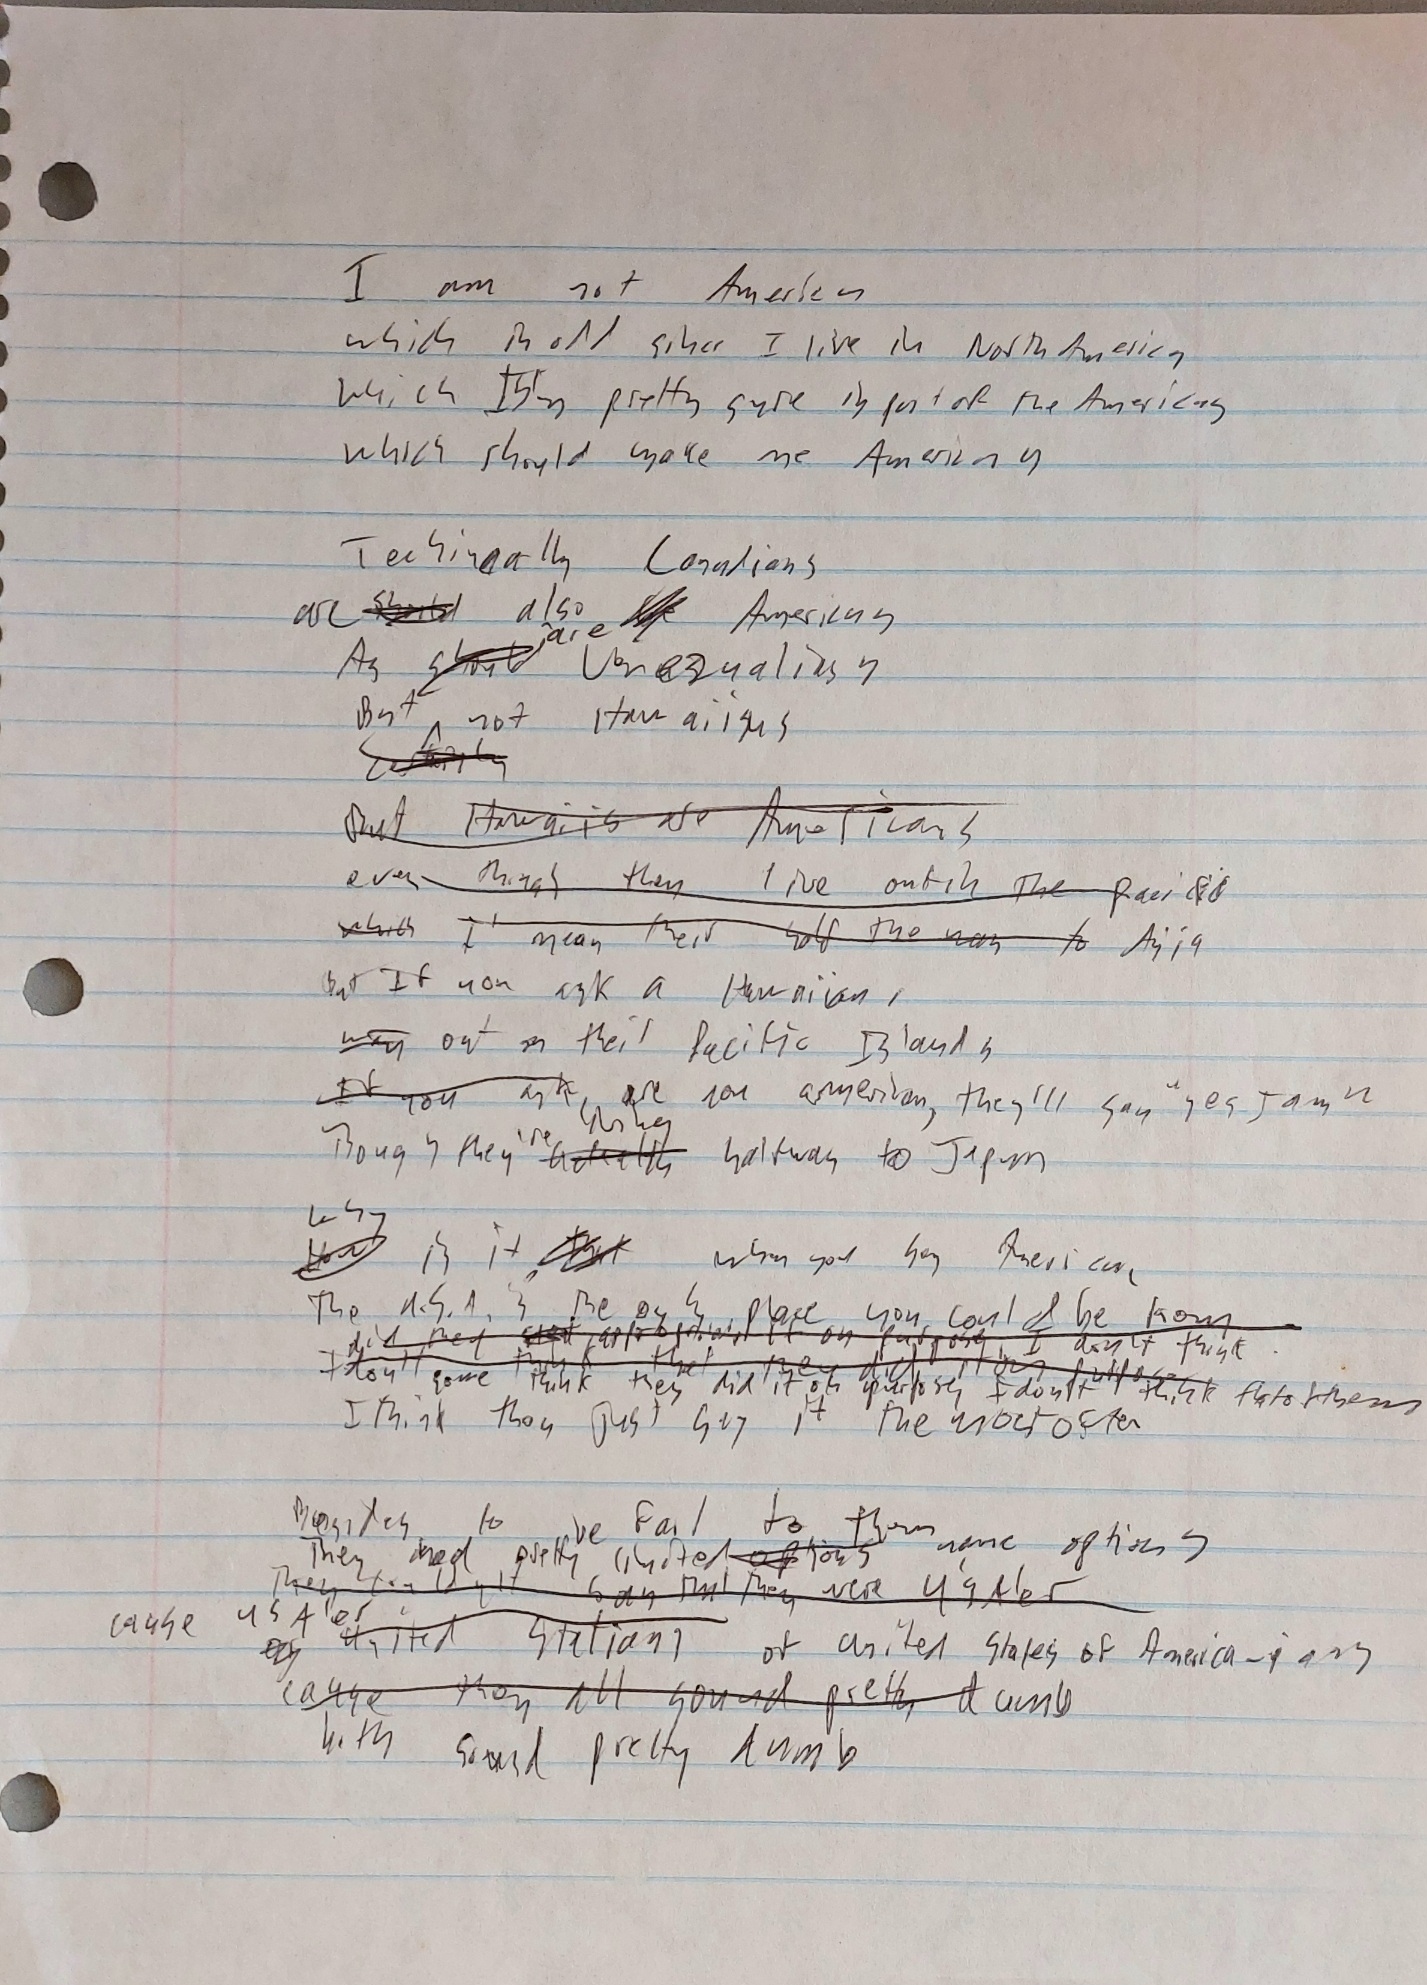 I am not American
which is odd since I live in North America
which I'm pretty sure is part of the Americas
which should make me American
Techinically Canadians
are should also American
As should are Venezualian
But not Hawaiians
Certainly
But Hawaiis are Americans
even though they live out in the pacific
which I mean their half the way to Asia
but If you ask a Hawaiian,
way out on their Pacific Islands
If you ask, are you american, they'll say "yes I am"
Though they're living halfway to Japan
Why
How is it that when you say American
The U.S.A. is the only place you could be from
did they appropriate it on purpose, I don't think
I don't think that they did it on purpose
some think they did it on purpose, I don't think that of them
I think they just say it the most often
Besides to be fair to them
They had pretty limited options name options
They couldn't say that they were USAer
cause USAer
or United Statians or United States of America-ians
cause they all sound pretty dumb
both sound pretty dumb